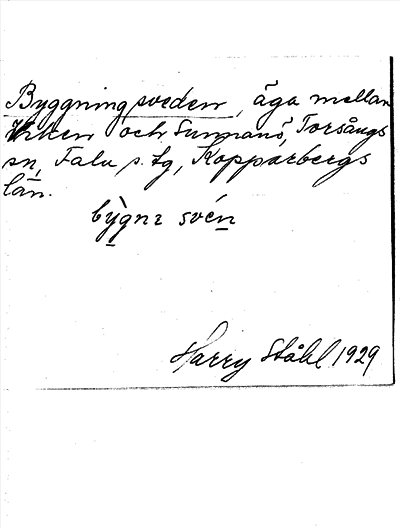 Byggningsveden, äga mellan
och Sunnanö, Torsångs
sn, Falu s. tg, Kopparbergs
län.
bỳ̠gnɪ svén̠
Harry Ståhl 1929